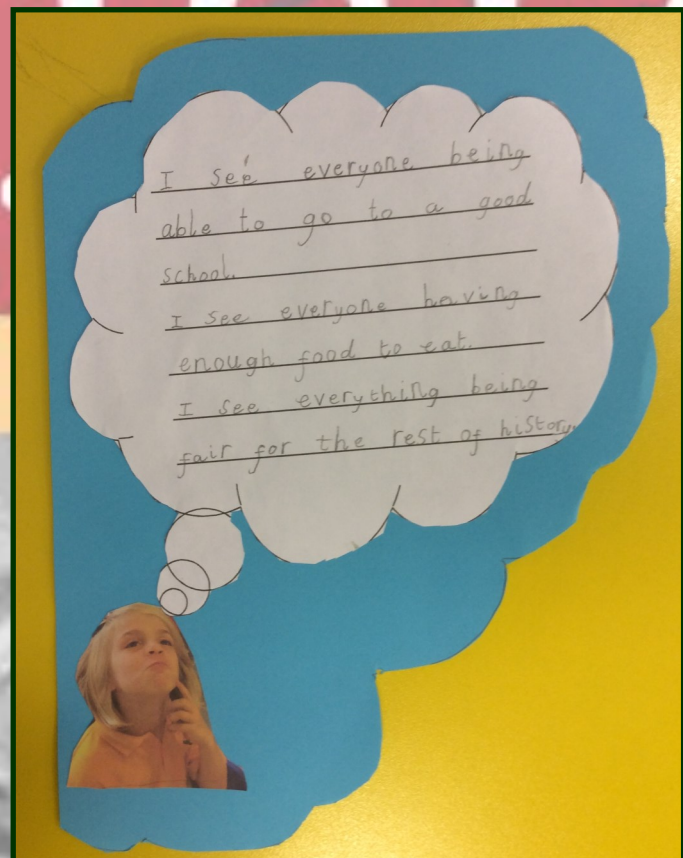 I see everyone being
able to go to a good
school.
I see everyone having
enough food to eat.
I see everything being
fair for the rest of history.